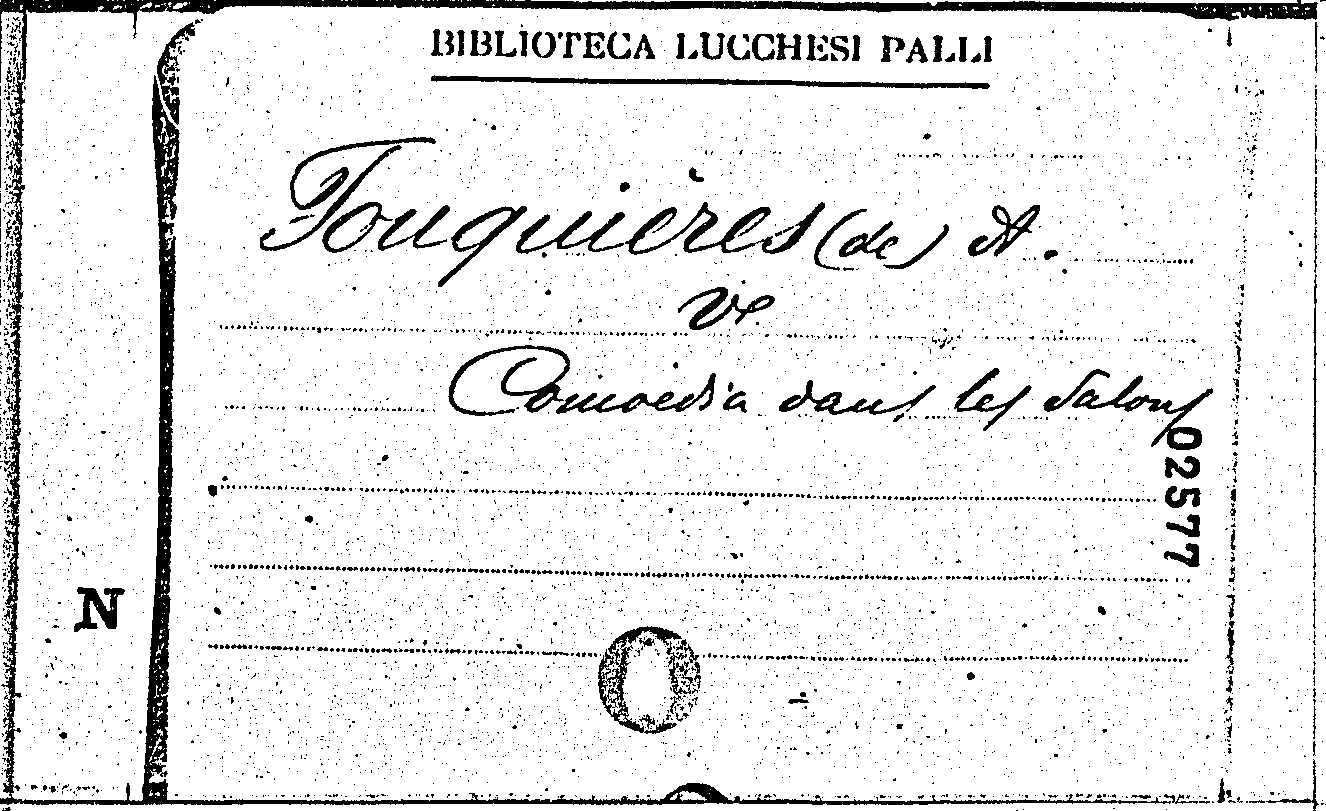 BIBLIOTECA LUCCHESI PALLI
Fouquières (de) A.
ve
Comoedia dans les Salons
02577
N